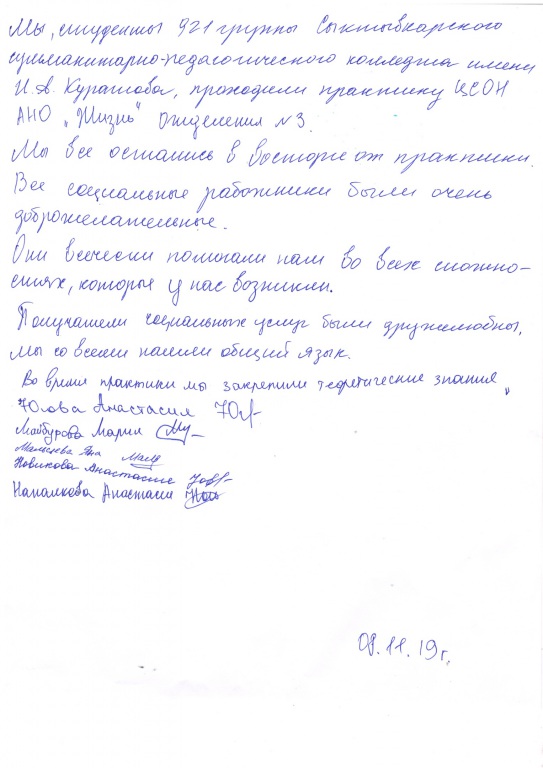 Мы, студенты 921 группы Сыктывкарского
гуманитарно-педагогического колледжа имени
И.А. Куратова, проходили практику ЦСОН
АНО „Жизнь" Отделения №3.
Мы все остались в восторге от практики.
Все социальные работники были очень
доброжелательные.
Они всячески помогали нам во всех сложно-
стях, которые у нас возникли.
Получатели социальных услуг были дружелюбны,
мы со всеми нашли общий язык.
Во время практики мы закрепили теоретические знания
Юлова Анастасия
Майбурова Мария
Мальцева Яна
Новикова Анастасия
Напалкова Анастасия
09.11.19г.